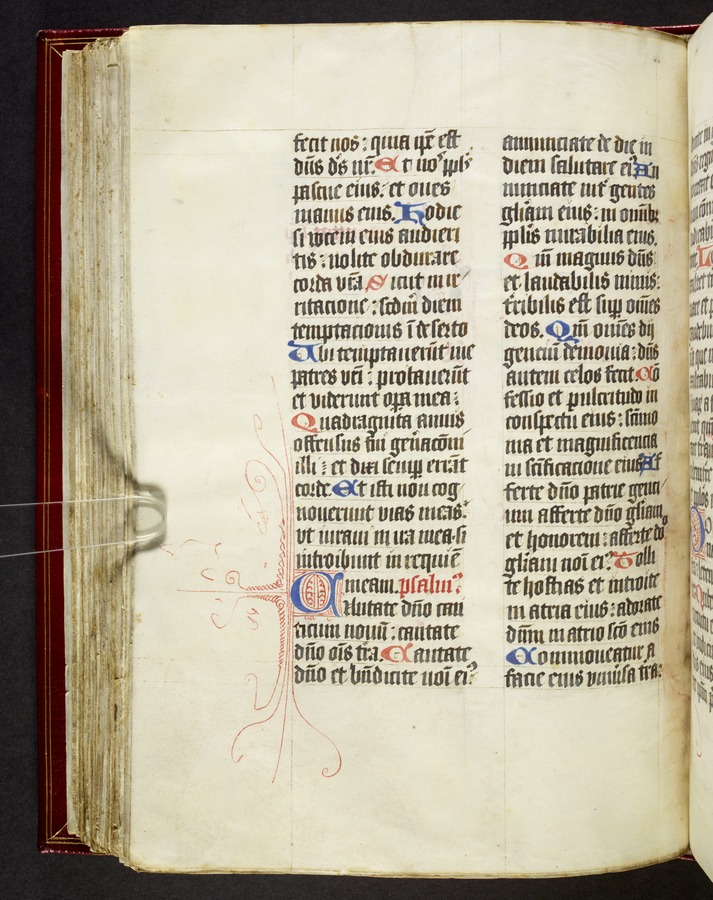 fecit nos : quia ip̄e est
dn̄s ds̄ nr̄. Et nos ppl̄s
pascue eius : et oues
manus eius. Hodie
si vocem eius audieri
tis : nolite obdurare
corda vr̄a Sicut in ir
ritacione : scd̄m diem
temptacionis ī deserto
Ubi temptauerūt me
patres vr̄i : probauerūt
et viderunt oꝑa mea :
Quadraginta annis
offensus fui genac̄oni
illi : et dixi semꝑ errāt
corde Et isti non cog
nouerunt vias meas :
vt iuraui in ira mea si
introibunt in requiē
meam. psalm9
Cantate dn̄o can
ticum nouū : cantate
dn̄o om̄s tr̄a. Cantate
dn̄o et bn̄dicite noī ei9
annunciate de die in
diem salutare ei9 An
nunciate int̄ gentes
gl̄iam eius : in omībꝫ
ppl̄is mirabilia eius.
Qm̄ magnus dn̄s
et laudabilis nimis :
t̄ribilis est suꝑ om̄es
deos. Qm̄ om̄es dij
genciū demonia : dn̄s
autem celos fecit. Cō
fessio et pulcritudo in
conspectu eius : sc̄imo
nia et magnificencia
in sc̄ificacione eius Af
ferte dn̄o patrie genci
um afferte dn̄o gl̄iam
et honorem : afferte dn̄o
gl̄iam noī ei9 Tolli
te hostias et introite
in atria eius : adorate
dn̄m in atrio sc̄o eius
Commoueatur a
facie eius vniūsa tr̄a :